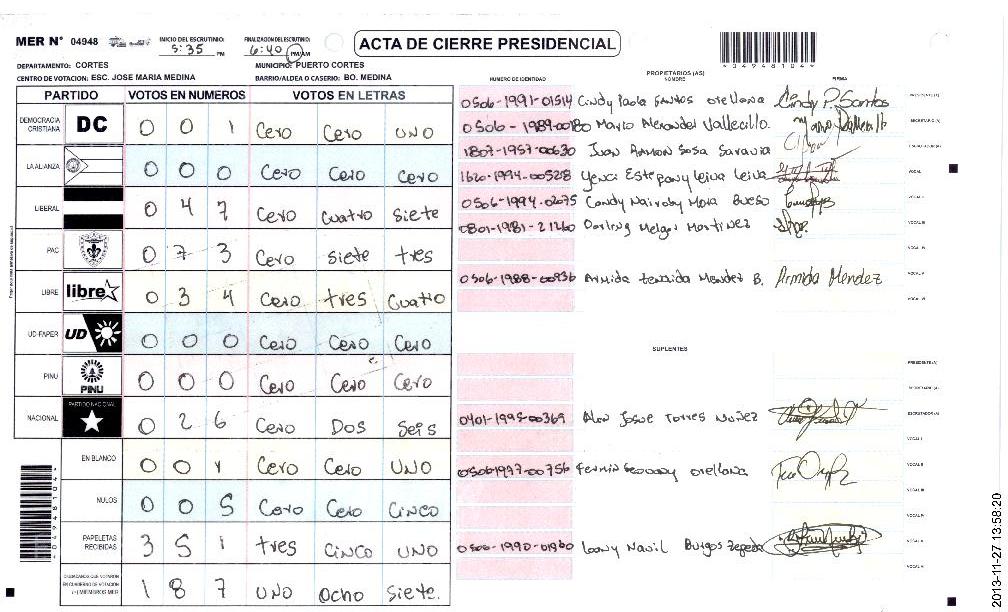 MER N° 04948
INICIO DEL ESCRUTINIO: 5:35 PM
FINALIZACION DEL ESCRUTINIO: 6:40 PM/AM
ACTA DE CIERRE PRESIDENCIAL
04948104
DEPARTAMENTO: CORTES
MUNICIPIO: PUERTO CORTES
CENTRO DE VOTACION: ESC. JOSE MARIA MEDINA
BARRIO/ALDEA O CASERIO: BO. MEDINA
PARTIDO VOTOS EN NUMEROS VOTOS EN LETRAS
DEMOCRACIA CRISTIANA DC 0 0 1 Cero Cero UNO
LA ALIANZA 0 0 0 Cero Cero Cero
LIBERAL 0 4 7 Cero Cuatro Siete
PAC 0 7 3 Cero Siete tres
LIBRE libre 0 3 4 Cero tres Cuatro
UD-FAPER UD 0 0 0 Cero Cero Cero
PINU PINU 0 0 0 Cero Cero Cero
NACIONAL PARTIDO NACIONAL 0 2 6 Cero DOS Seis
EN BLANCO 0 0 1 Cero Cero UNO
NULOS 0 0 5 Cero Cero CINCO
PAPELETAS RECIBIDAS 3 5 1 tres CINCO UNO
CIUDADANOS QUE VOTARON EN CUADERNO DE VOTACION (+) MIEMBROS MER 1 8 7 UNO Ocho Siete.
PROPIETARIOS (AS)
NUMERO DE IDENTIDAD NOMBRE FIRMA
0506-1991-01514 Cindy Paola Santos Orellana Cindy P. Santos PRESIDENTE(A)
0506-1989-00180 Mario Alexander Vallecillo. SECRETARIO(A)
1807-1957-00630 Juan Ramon Sosa Saravia ESCRUTADOR(A)
1620-1994-00528 Yenci Estepany Leiva Leiva VOCAL I
0506-1994-02075 Candy Nairoby Mora Bueso VOCAL II
0801-1981-21260 Darling Melgar Martinez VOCAL III
VOCAL IV
0506-1988-00936 Armida Mendez B. Armida Mendez VOCAL V
VOCAL VI
SUPLENTES
PRESIDENTE(A)
SECRETARIO(A)
0401-1995-00369 Alex Josue Torres Nuñez ESCRUTADOR(A)
VOCAL I
0506-1997-00756 Fermin Orellana VOCAL II
VOCAL III
VOCAL IV
0506-1990-01960 Burgos Zepeda VOCAL V
VOCAL VI
2013-11-27 13:58:20